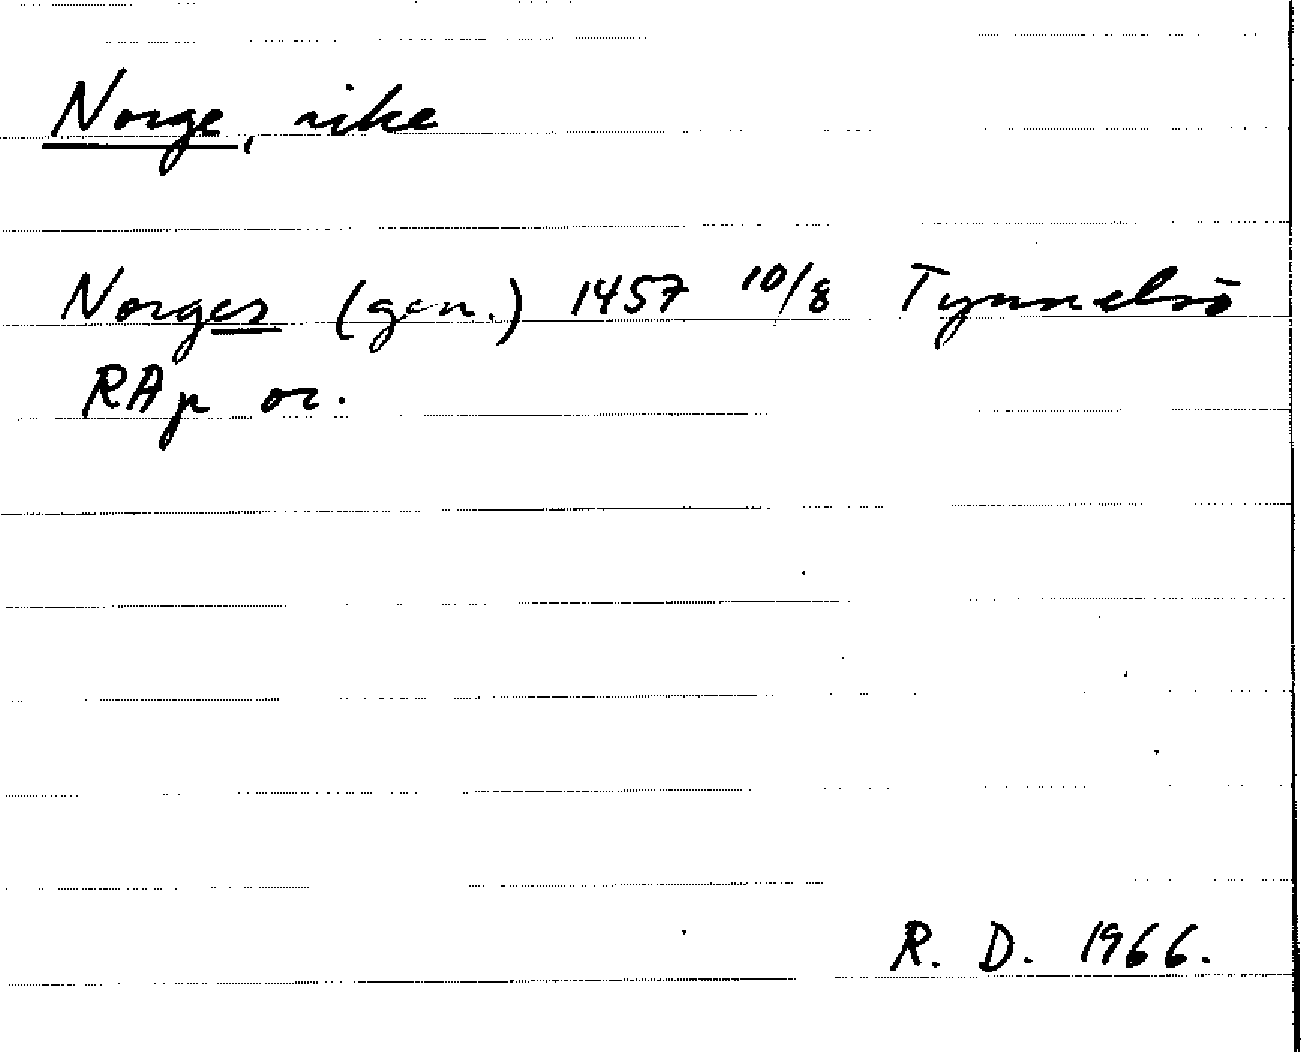 Norge, rike
Norges (gen.) 1457 10/8 Tynnelsö
RAp or.
R. D. 1966.